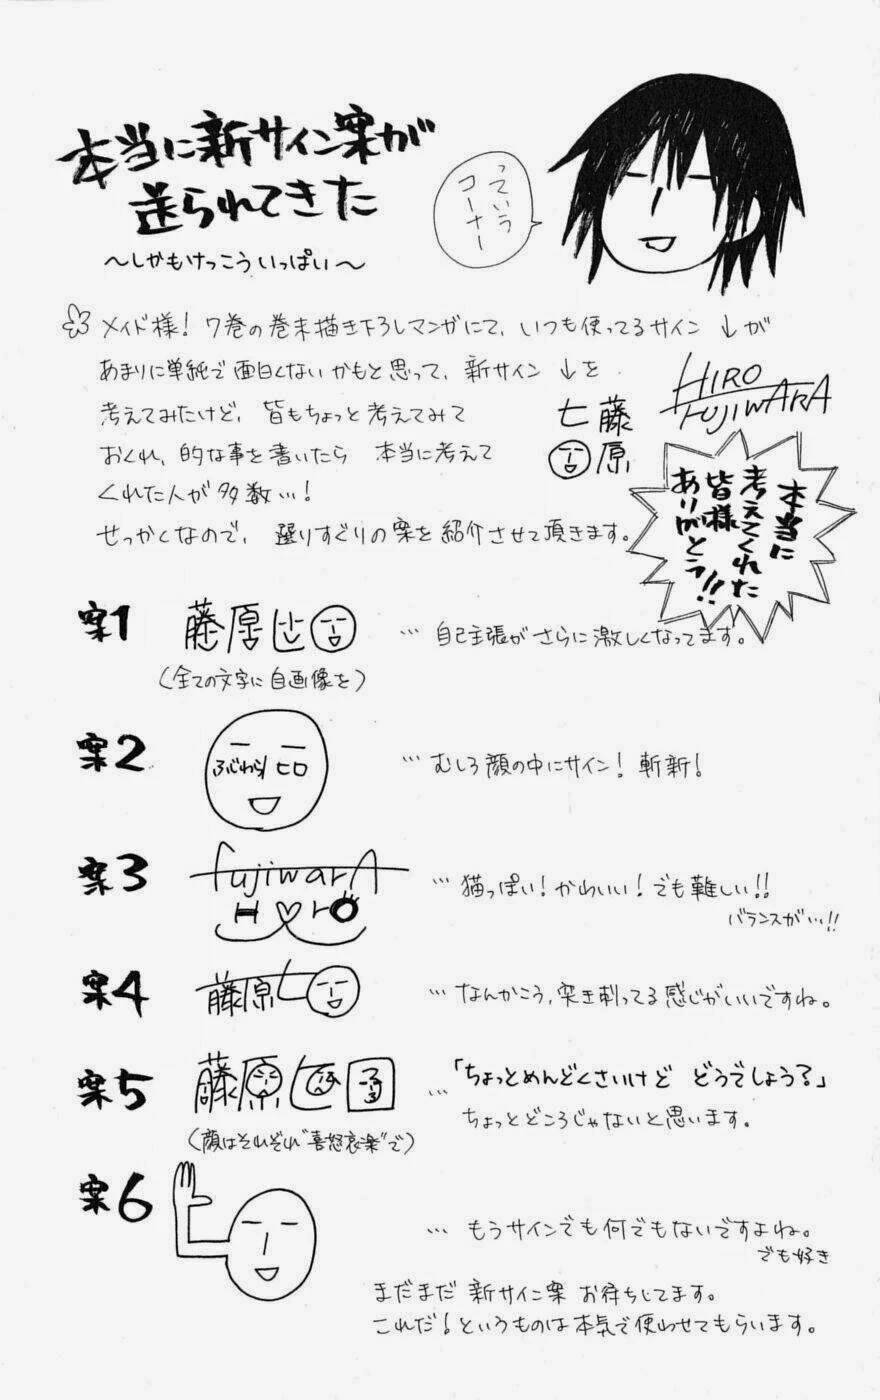 本当に新サイン案が
送られてきた
〜しかもけっこういっぱい〜
っていう
コーナー
メイド様！7巻の巻末描き下ろしマンガにて、いつも使ってるサイン↓が
あまりに単純で面白くないかもと思って、新サイン↓を
考えてみたけど、皆もちょっと考えてみて
おくれ、的な事を書いたら 本当に考えて
くれた人が多数…！
せっかくなので、選りすぐりの案を紹介させて頂きます。
HIRO
FUJIWARA
ヒ藤
原
本当に
考えてくれた
皆様
ありがとう!!
案1
藤原ヒロ
…自己主張がさらに激しくなってます。
（全ての文字に自画像を）
案2
ふじわらヒロ
…むしろ顔の中にサイン！斬新！
案3
fujiwarA
H♡rO
…猫っぽい！かわいい！でも難しい!!
バランスが…!!
案4
藤原ヒ
…なんかこう、突き刺ってる感じがいいですね。
案5
藤原ヒロ
…「ちょっとめんどくさいけど どうでしょうる」
ちょっとどころじゃないと思います。
（顔はそれぞれ"喜怒哀楽"で）
案6
…もうサインでも何でもないですよね。
でも好き
まだまだ 新サイン案 お待ちしてます。
これだ！というものは本気で使わせてもらいます。